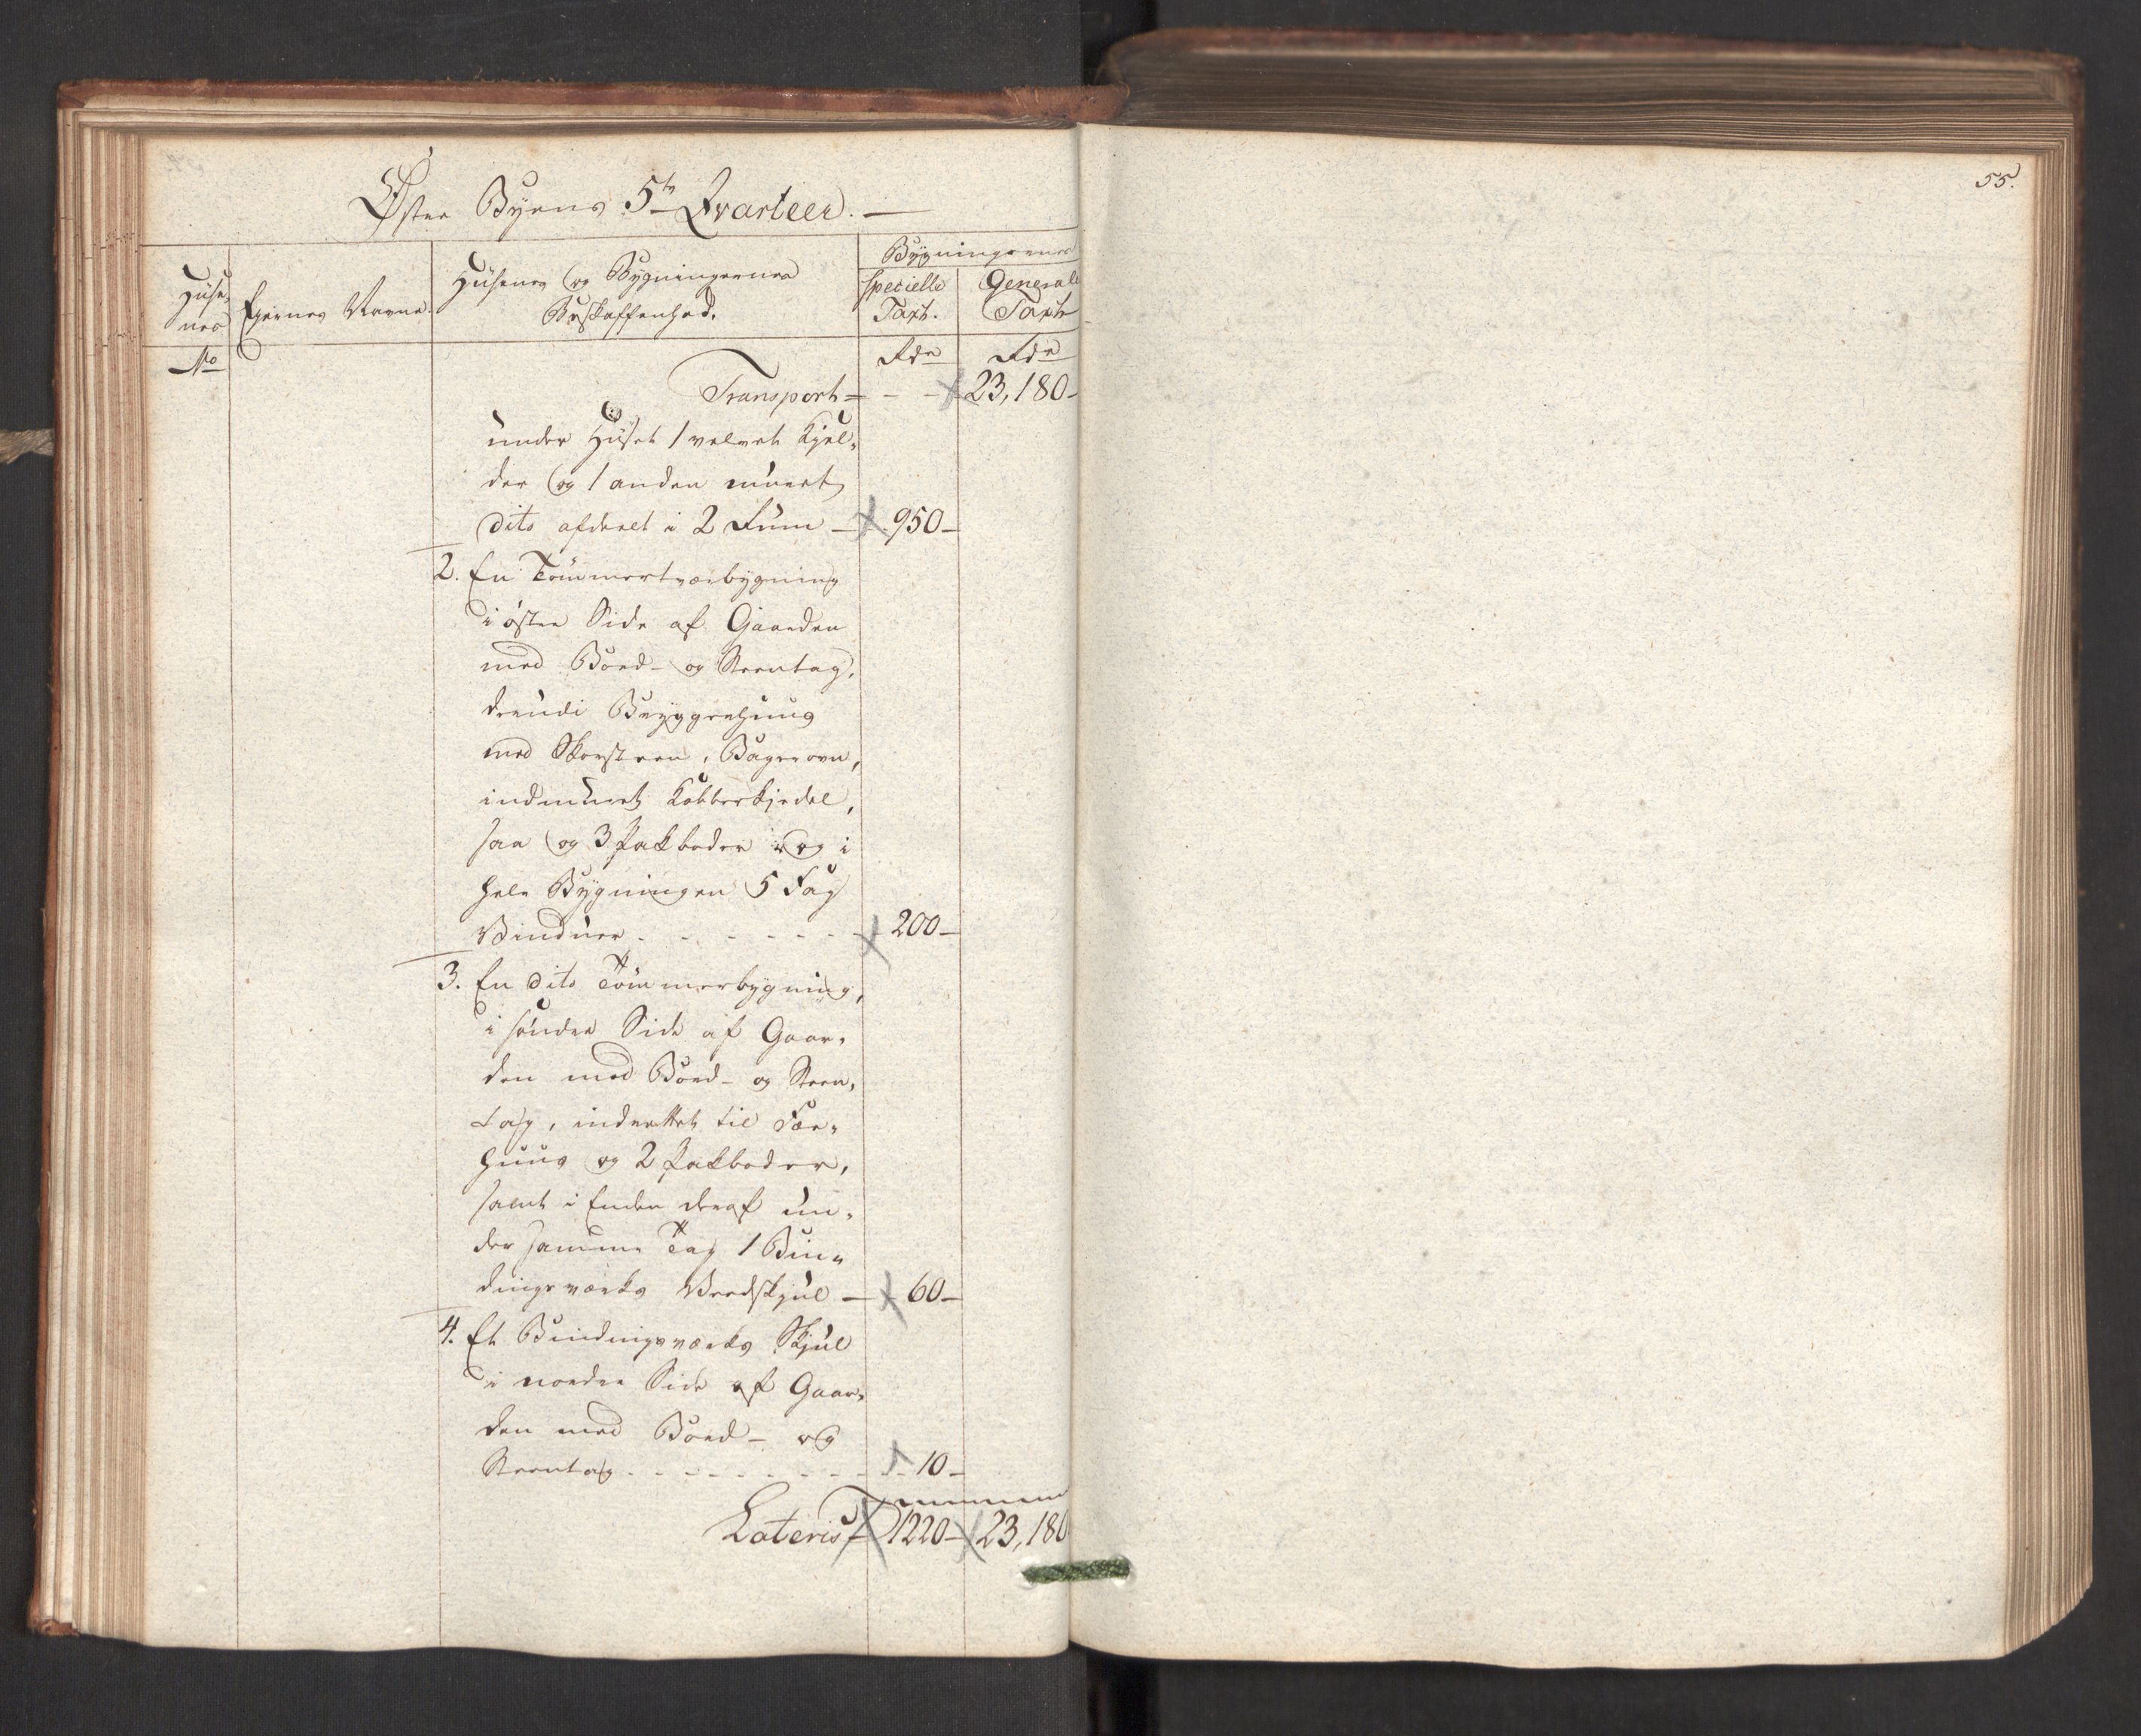 55.
Øster Byens 5te Qvarteer. —
Huse-
nes
No
Eiernes Navne.
Husenes og Bygningernes
Beskaffenhed.
Bygningernes
specielle
Taxt.
Generale
Taxt
Rdr
Rdr
Transport = - - 23,180 -
under Huset 1 velvet Kjel-
der og 1 anden muret
dito afdeelt i 2 Rum — 950 -
2. En Tömmertværbygning
i øster Side af Gaarden
med Bord- og Steentag,
derudi Bryggerhuus
med Skorsteen, Bagerovn,
indmuret Kobberkjedel,
saa og 3 Pakboder og i
hele Bygningen 5 Fag
Vinduer - - - - - - - 200 -
3. En dito Tömmerbygning,
i sönder Side af Gaar-
den med Bord- og Steen-
tag, indrettet til Fær-
huus og 2 Pakboder,
samt i Enden deraf un-
der samme Tag 1 Bin-
dingsværks Veedskjul — 60 -
4. Et Bindingsværks Skjul
i norder Side af Gaar-
den med Bord- og
Steentag - - - - - - - - 10 -
Lateris 1220 - 23,180